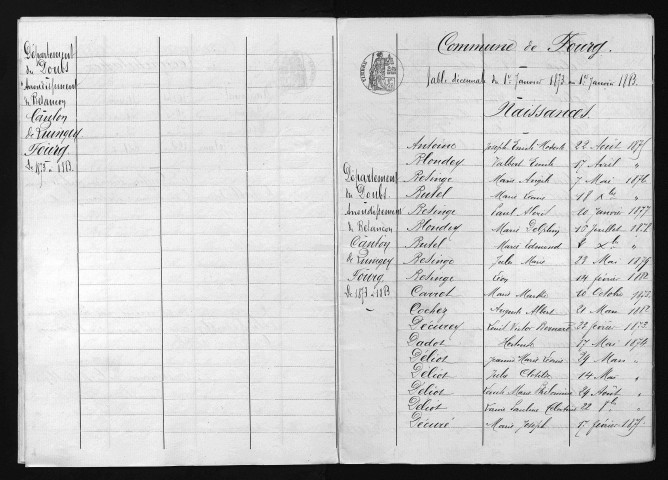 Département
du Doubs
Arrondissement
de Besançon
Canton
de Quingey
Fourg
De 1873 à 1883
Commune de Fourg.
Table décennale du 1er Janvier 1873 au 1er Janvier 1883.
Naissances.
Département
du Doubs
Arrondissement
de Besançon
Canton
de Quingey
Fourg
De 1873 à 1883
Antoine Joseph Emile 22 Août 1875
Blondey Valbert Emile 17 Avril "
Bosinge Marie 7 Mai 1876
Butel Marie Louise 18 Xbre "
Bosinge Paul 20 Janvier 1877
Blondey Marie 10 Juillet 1878
Butel Marie Edmond 8 Xbre "
Bosinge Jules Marie 23 Mai 1879
Bosinge Léon 14 février 1882
Carrot Marie 10 Octobre 1873
Cochez Auguste Albert 21 Mars 1882
Décurey Louis Victor Bernard 22 février 1873
Dadot 17 Mai 1874
Déliot Jeanne Marie 29 Mars "
Déliot Jules 14 Mai "
Déliot Marie Philomène 29 Août "
Déliot Pauline 22 "
Décuré Marie Joseph 5 février 1875